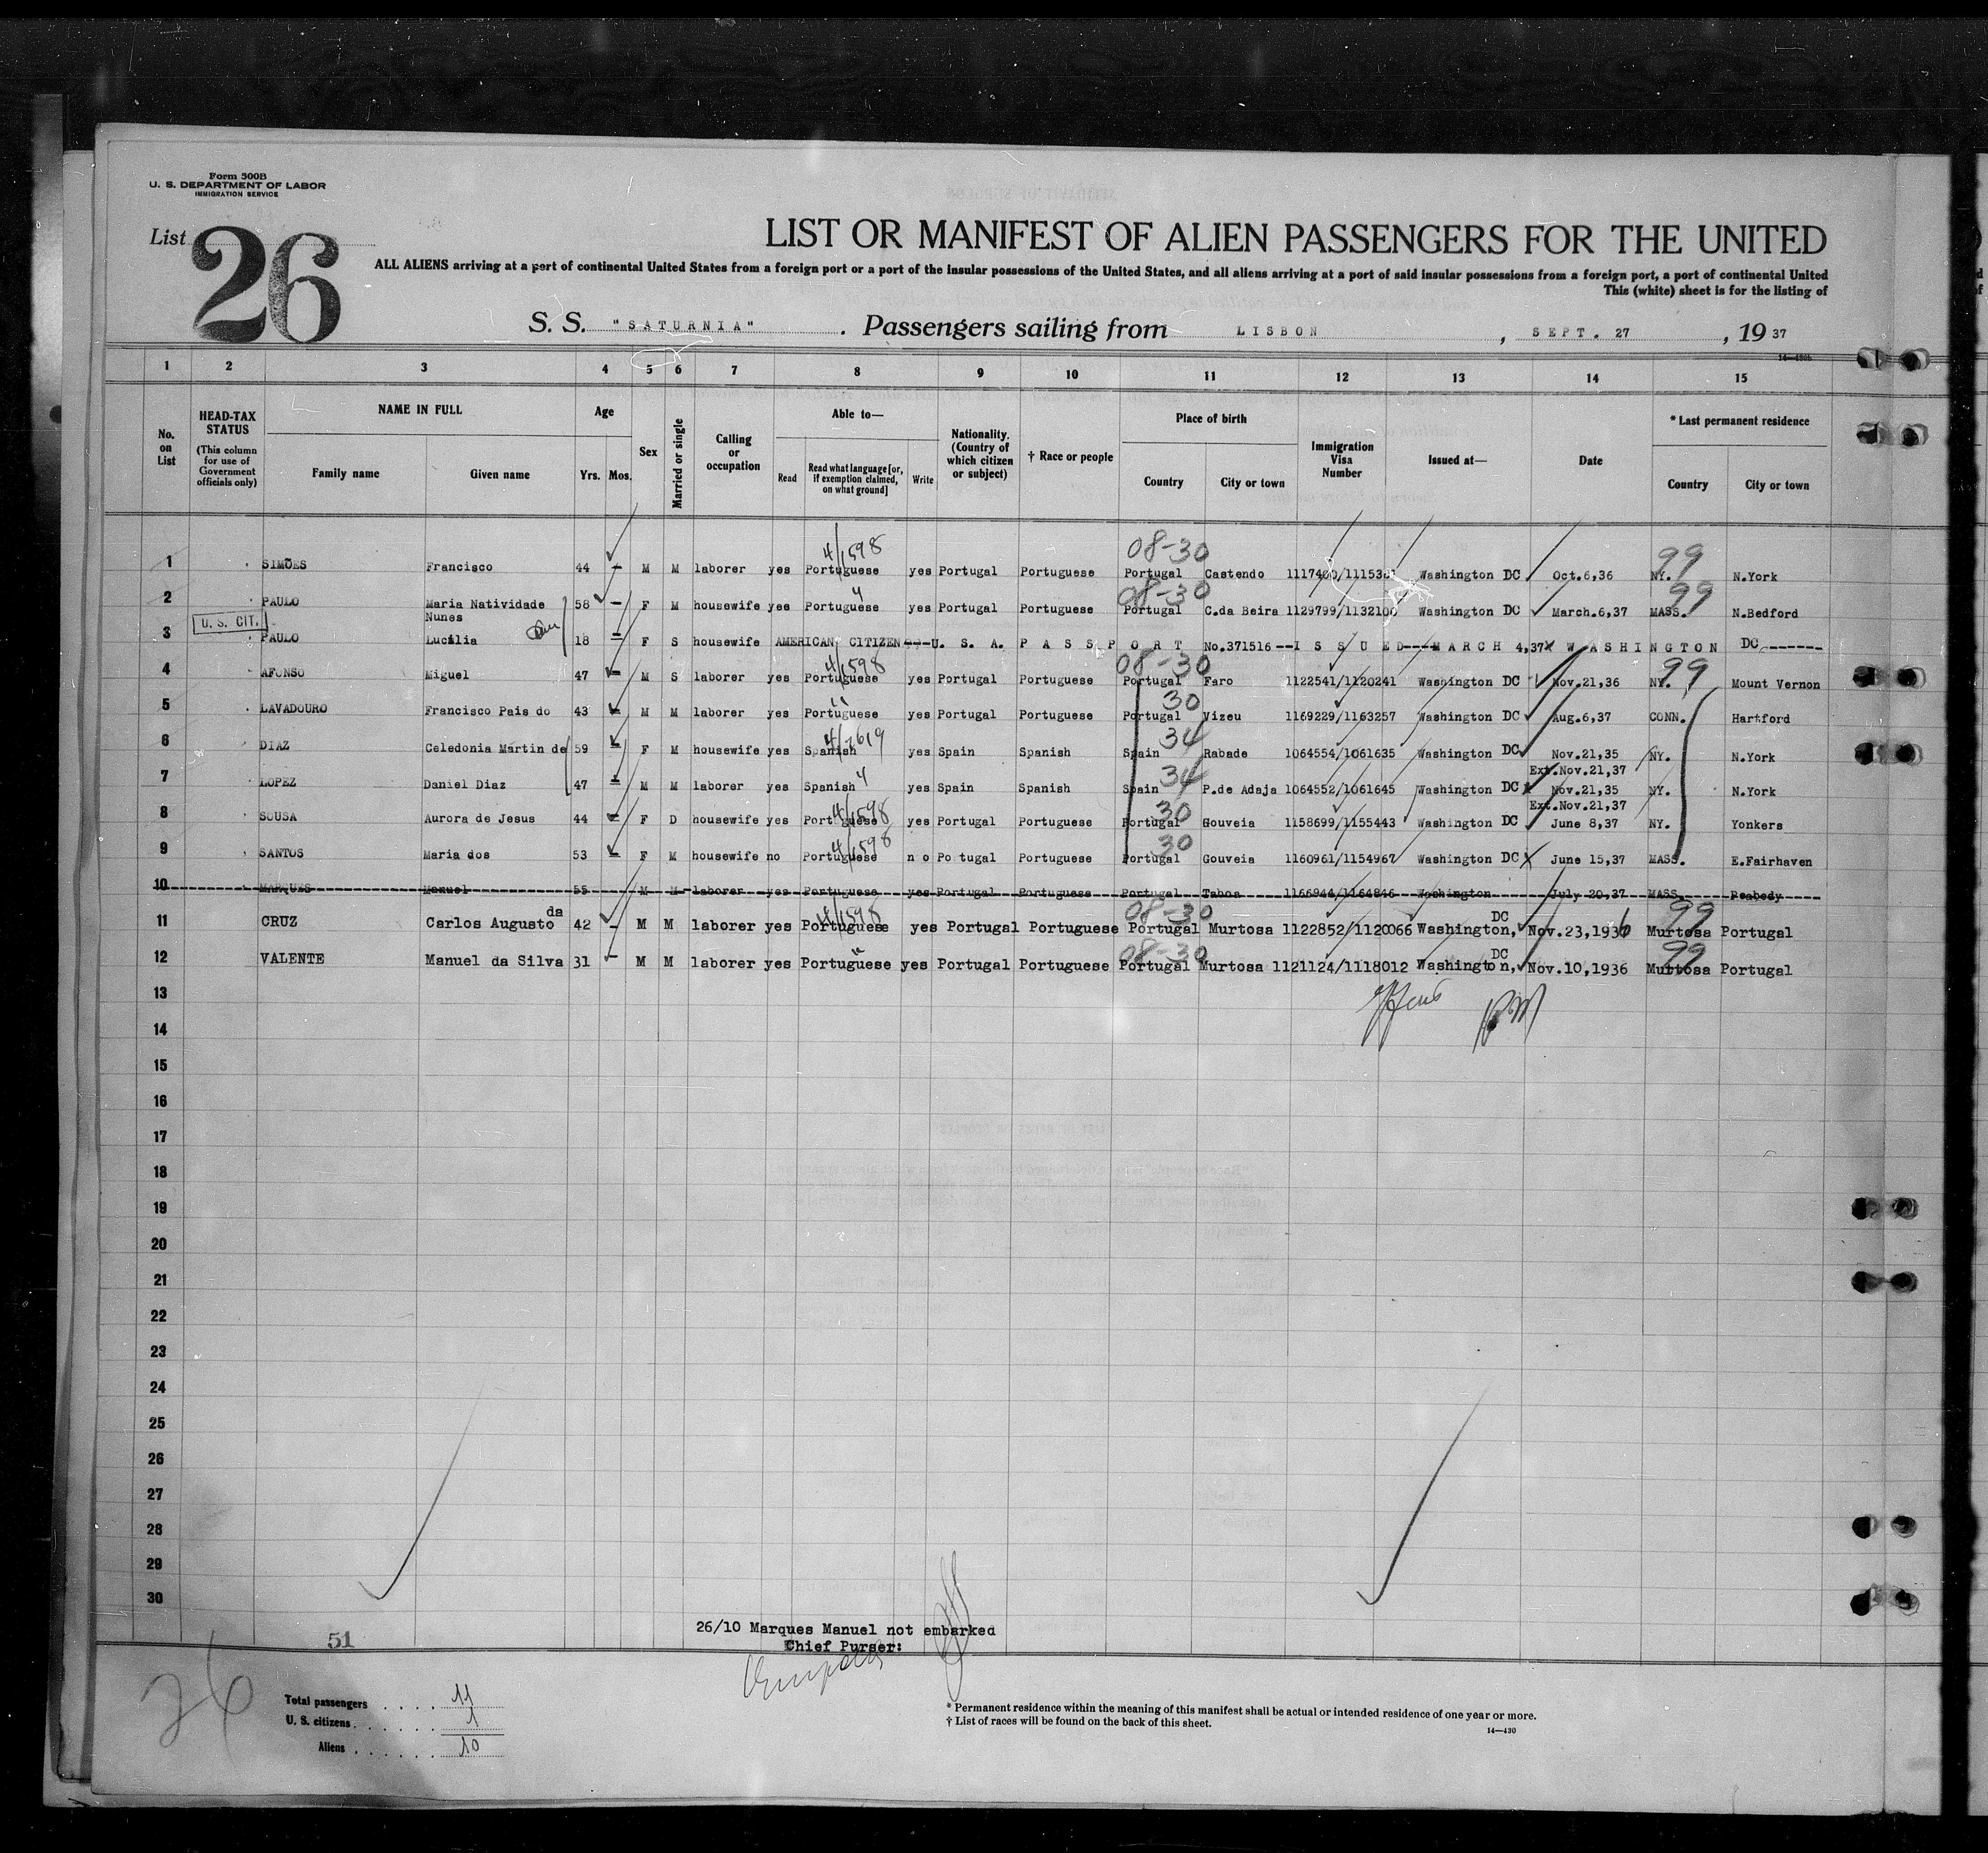 Form 500B
U. S. DEPARTMENT OF LABOR
IMMIGRATION SERVICE
List 26
LIST OR MANIFEST OF ALIEN PASSENGERS FOR THE UNITED
ALL ALIENS arriving at a port of continental United States from a foreign port or a port of the insular possessions of the United States, and all aliens arriving at a port of said insular possessions from a foreign port, a port of continental United
This (white) sheet is for the listing of
S. S. "SATURNIA" . Passengers sailing from LISBON , SEPT. 27 , 19 37
1 2 3 4 5 6 7 8 9 10 11 12 13 14 15
No. on List
HEAD-TAX STATUS (This column for use of Government officials only)
NAME IN FULL
Family name Given name
Age
Yrs. Mos.
Sex
Married or single
Calling or occupation
Able to—
Read Read what language [or, if exemption claimed, on what ground] Write
Nationality. (Country of which citizen or subject)
† Race or people
Place of birth
Country City or town
Immigration Visa Number
Issued at—
Date
* Last permanent residence
Country City or town
4/1598 08-30 99
1 SIMÕES Francisco 44 – M M laborer yes Portuguese yes Portugal Portuguese Portugal Castendo Washington DC Oct.6,36 NY. N.York
08-30 99
2 PAULO Maria Natividade Nunes 58 – F M housewife yes Portuguese yes Portugal Portuguese Portugal C.da Beira Washington DC March.6,37 MASS. N.Bedford
U. S. CIT.
3 PAULO Lucilia 18 – F S housewife AMERICAN CITIZEN---U. S. A. P A S S P O R T No.371516--I S S U E D----MARCH 4,37 WASHINGTON DC-------
4/1598 08-30 99
4 AFONSO Miguel 47 – M S laborer yes Portuguese yes Portugal Portuguese Portugal Faro 1122541/1120241 Washington DC Nov.21,36 NY. Mount Vernon
30
5 LAVADOURO Francisco Pais do 43 – M M laborer yes Portuguese yes Portugal Portuguese Portugal Vizeu 1169229/1163257 Washington DC Aug.6,37 CONN. Hartford
34
6 DIAZ Celedonia Martin de 59 – F M housewife yes Spanish yes Spain Spanish Spain Rabade 1064554/1061635 Washington DC Nov.21,35 NY. N.York
Ext.Nov.21,37
34
7 LOPEZ Daniel Diaz 47 – M M laborer yes Spanish yes Spain Spanish Spain P.de Adaja 1064552/1061645 Washington DC Nov.21,35 NY. N.York
Ext.Nov.21,37
4/1598 30
8 SOUSA Aurora de Jesus 44 – F D housewife yes Portuguese yes Portugal Portuguese Portugal Gouveia 1158699/1155443 Washington DC June 8,37 NY. Yonkers
4/1598 30
9 SANTOS Maria dos 53 – F M housewife no Portuguese no Po tugal Portuguese Portugal Gouveia 1160961/1154967 Washington DC June 15,37 MASS. E.Fairhaven
10 MARQUES Manuel 55 M M laborer yes Portuguese yes Portugal Portuguese Portugal Taboa 1166944/1164846 Washington July 20,37 MASS. Peabody
4/1598 08-30 99
11 CRUZ Carlos Augusto da 42 – M M laborer yes Portuguese yes Portugal Portuguese Portugal Murtosa 1122852/1120066 Washington, DC Nov.23,1936 Murtosa Portugal
08-30 99
12 VALENTE Manuel da Silva 31 – M M laborer yes Portuguese yes Portugal Portuguese Portugal Murtosa 1121124/1118012 Washington, DC Nov.10,1936 Murtosa Portugal
13
14
15
16
17
18
19
20
21
22
23
24
25
26
27
28
29
30
26/10 Marques Manuel not embarked
Chief Purser:
51
26
Total passengers . . . . 11
U. S. citizens . . . . . . 1
Aliens . . . . . . 10
* Permanent residence within the meaning of this manifest shall be actual or intended residence of one year or more.
† List of races will be found on the back of this sheet.
14—430